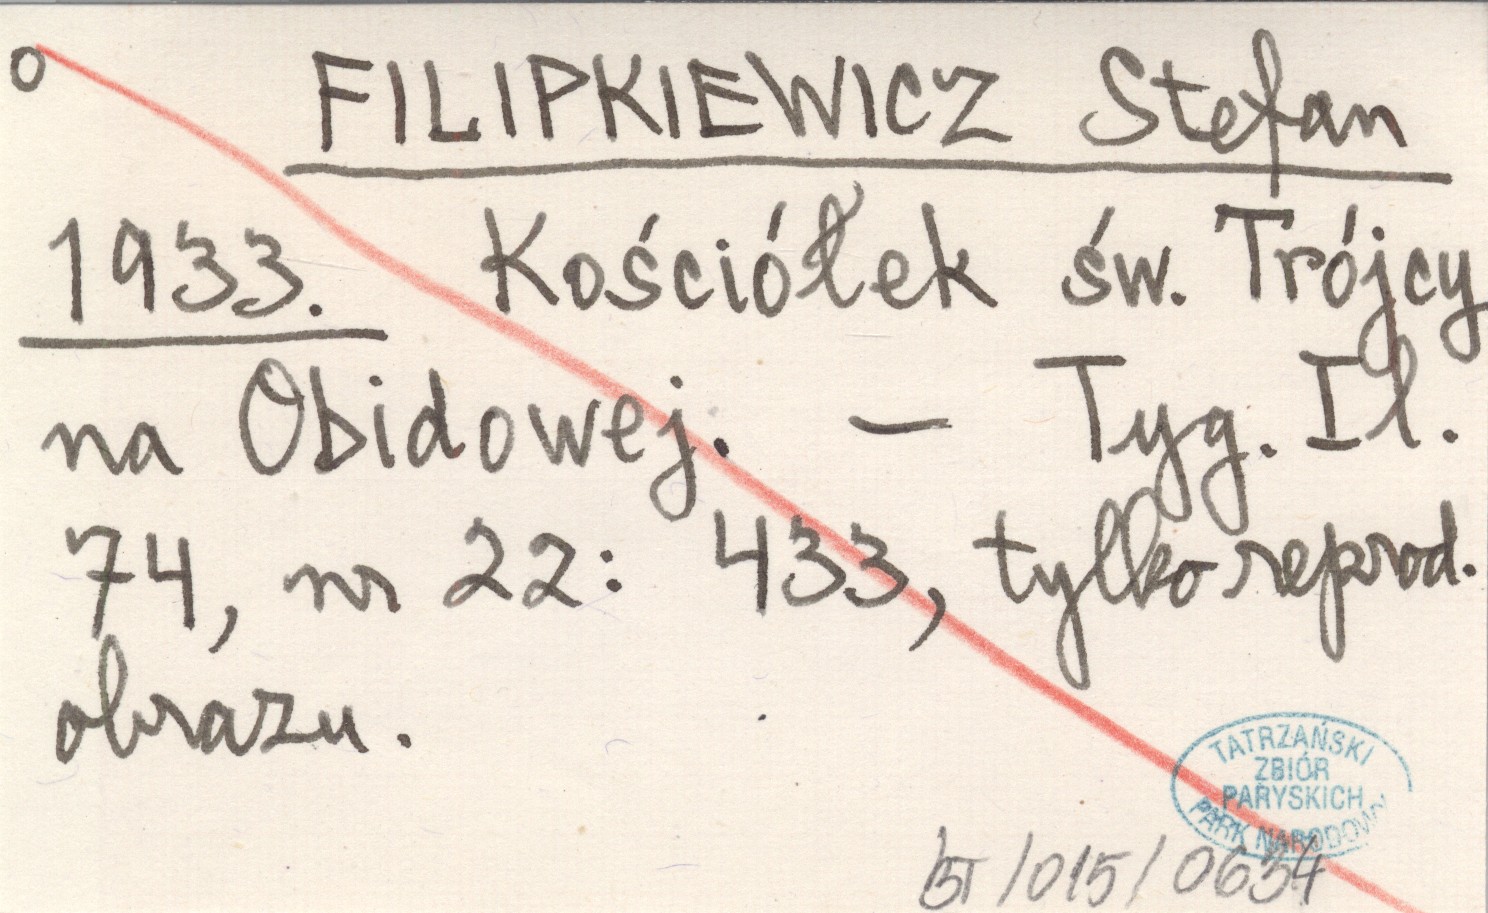 o FILIPKIEWICZ Stefan
1933. Kościółek św. Trójcy
na Obidowej. — Tyg. Il.
74, nr 22: 433, tylko reprod.
obrazu.
TATRZAŃSKI
ZBIÓR
PARYSKICH
PARK NARODOWY
BT/015/0634